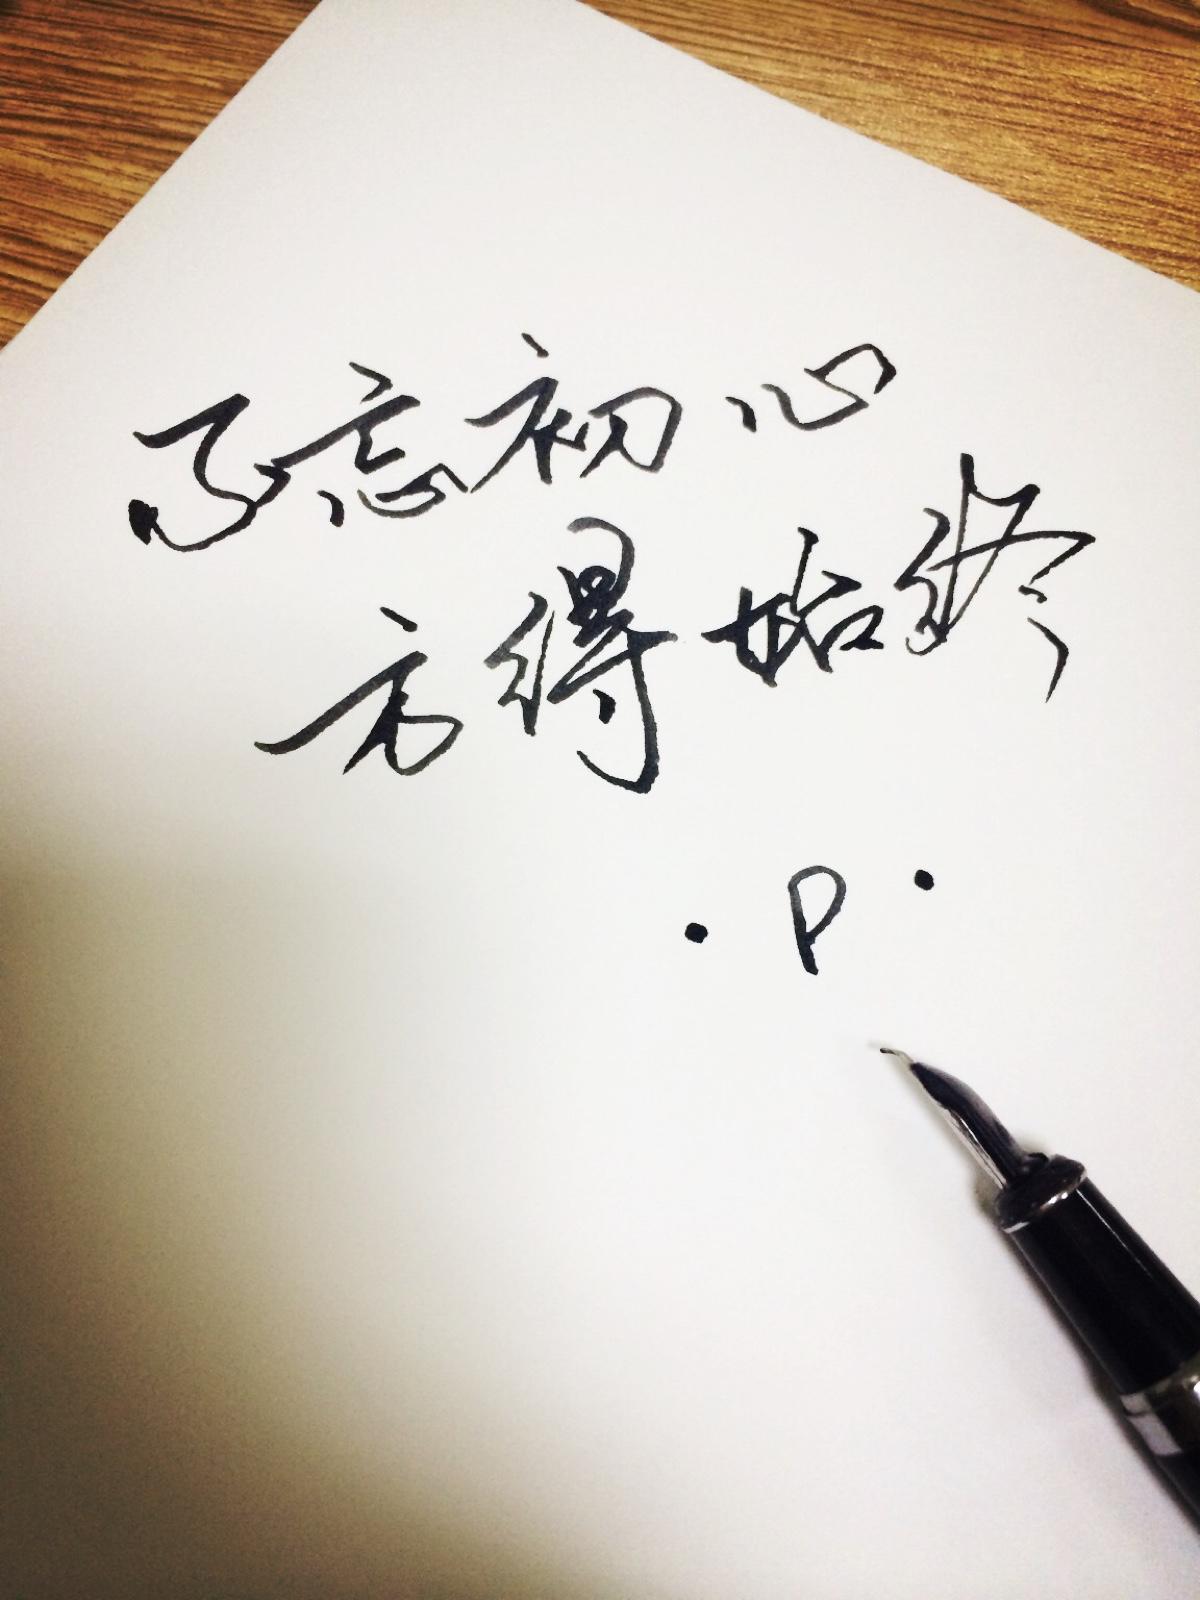 不忘初心
方得始终
· P ·